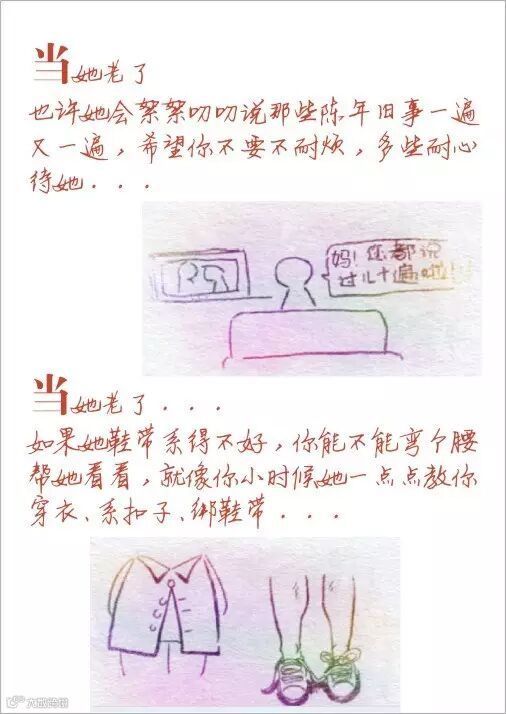 当她老了
也许她会絮絮叨叨说那些陈年旧事一遍
又一遍，希望你不要不耐烦，多些耐心
待她...
妈！您都说
过几十遍啦！
当她老了...
如果她鞋带系得不好，你能不能弯个腰
帮她看看，就像你小时候她一点点教你
穿衣、系扣子、绑鞋带...